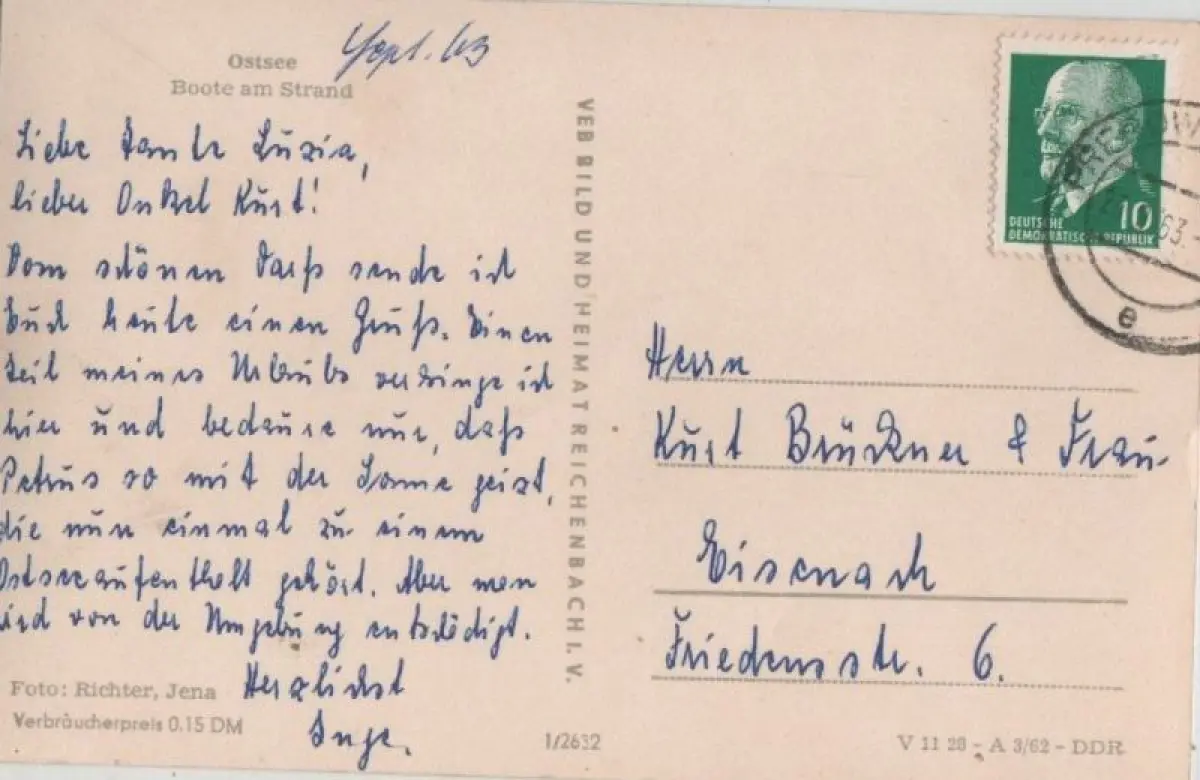 Sept. 63
Ostsee
Boote am Strand
Liebe Tante Luzia,
lieber Onkel Kurt!
Vom schönen Darß sende ich
Euch heute einen Gruß. Einen
Teil meines Urlaubs verbringe ich
hier und bedaure nur, daß
Petrus so mit der Sonne geizt,
die nun einmal zu einem
Ostseeaufenthalt gehört. Aber man
wird von der Umgebung entschädigt.
Herzlichst
Inge.
Foto: Richter, Jena
Verbraucherpreis 0.15 DM
VEB BILD UND HEIMAT REICHENBACH I. V.
1/2632
10
DEUTSCHE
DEMOKRATISCHE REPUBLIK
63
e
Herrn
Kurt Brückner & Frau
Eisenach
Friedensstr. 6.
V 11 28 - A 3/62 - DDR